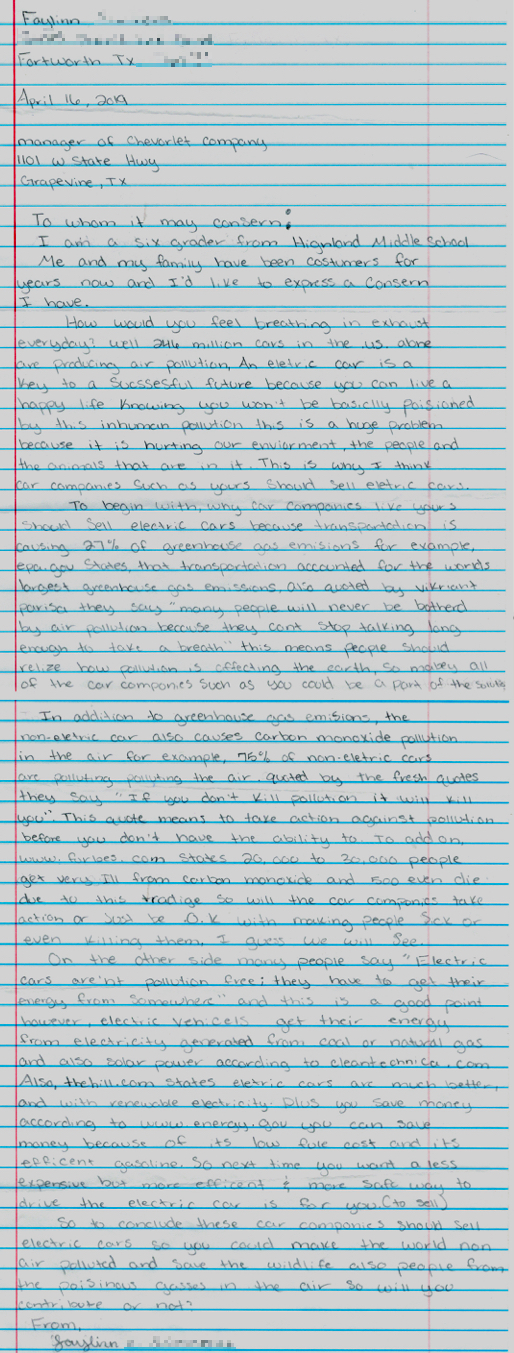 Faylinn
Fortworth Tx
April 16, 2019
manager of Chevorlet company
1101 W State Hwy
Grapevine, TX
To whom it may consern:
I am a six grader from Highland Middle School
Me and my family have been costumers for
years now and I'd like to express a consern
I have.
How would you feel breathing in exhaust
everyday? well 246 million cars in the .us. alone
are producing air pollution, An eletric car is a
key to a Successful future because you can live a
happy life knowing you won't be basiclly poisioned
by this inhuman pollution this is a huge problem
because it is hurting our enviorment, the people and
the animals that are in it. This is why I think
car companies Such as yours Should Sell eletric cars.
To begin with, why car companies like yours
Should Sell electric cars because transportation is
causing 27% of greenhouse gas emisions for example,
epa.gov States, that transportation accounted for the worlds
largest greenhouse gas emissions, also quoted by vikriant
parisa they say "many people will never be botherd
by air pollution because they cant Stop talking long
enough to take a breath" this means people Should
relize how pollution is affecting the earth, So maibey all
of the car companies Such as you could be a part of the solution
In addition to greenhouse gas emisions, the
non-eletric car also causes carbon monoxide pollution
in the air for example, 75% of non-eletric cars
are polluting polluting the air. quoted by the fresh quotes
they say "If you don't kill pollution it will kill
you" This quote means to take action against pollution
before you don't have the ability to. To add on,
www.forbes.com States 20,000 to 30,000 people
get very Ill from carbon monoxide and 500 even die
due to this tradige so will the car companies take
action or Just be .O.K with making people Sick or
even killing them, I guess we will See.
On the other side many people say "Electric
cars are'nt pollution free; they have to get their
energy from somewhere" and this is a good point
however, electric vehicels get their energy
from electricity generated from coal or natural gas
and also solar power according to cleantechnica.com
Also, thehill.com states eletric cars are much better,
and with renewable electricity. Plus you save money
according to www.energy.gov you can save
money because of its low fule cost and its
efficent gasoline. So next time you want a less
expensive but more efficent & more Safe way to
drive the electric car is for you.(to sell)
So to conclude these car companies Should Sell
electric cars so you could make the world non
air polluted and Save the wildlife also people from
the poisinous gasses in the air So will you
contribute or not?
From,
Faylinn